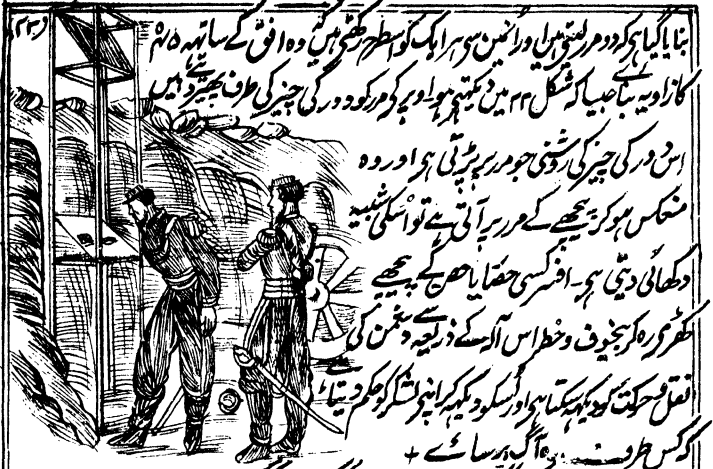 (۲۳)
بنایا گیا ہی کہ دو مرر لیتے ہیں اور اُنمین سی ہر ایک کو اسطرح رکھتی ہیں کہ وہ افق کے ساتھہ ۴۵
کا زاویہ بناے جیسا کہ شکل ۲۲ میں دیکھتے ہو اوپر کی مرر کو دور کی چیز کی طرف پھیر دیتے ہیں
اس دور کی چیز کی روشنی جو مرر پر پڑتی ہی اور وہ
منعکس ہو کر نیچے کے مرر پر آتی ہے تو اُسکی شبیہ
دکھائی دیتی ہی۔ افسر کسی خضا یا حصن کے پیچھے
کھڑی رہ کر بیخوف و خطر اس آلہ کے ذریعہ سے دشمن کی
نقل و حرکت کو دیکھہ سکتا ہی اور اُسکو دیکھہ کر اپنی لشکر کو حکم دیتا ہے
کہ کس طرف آگ برسائے +